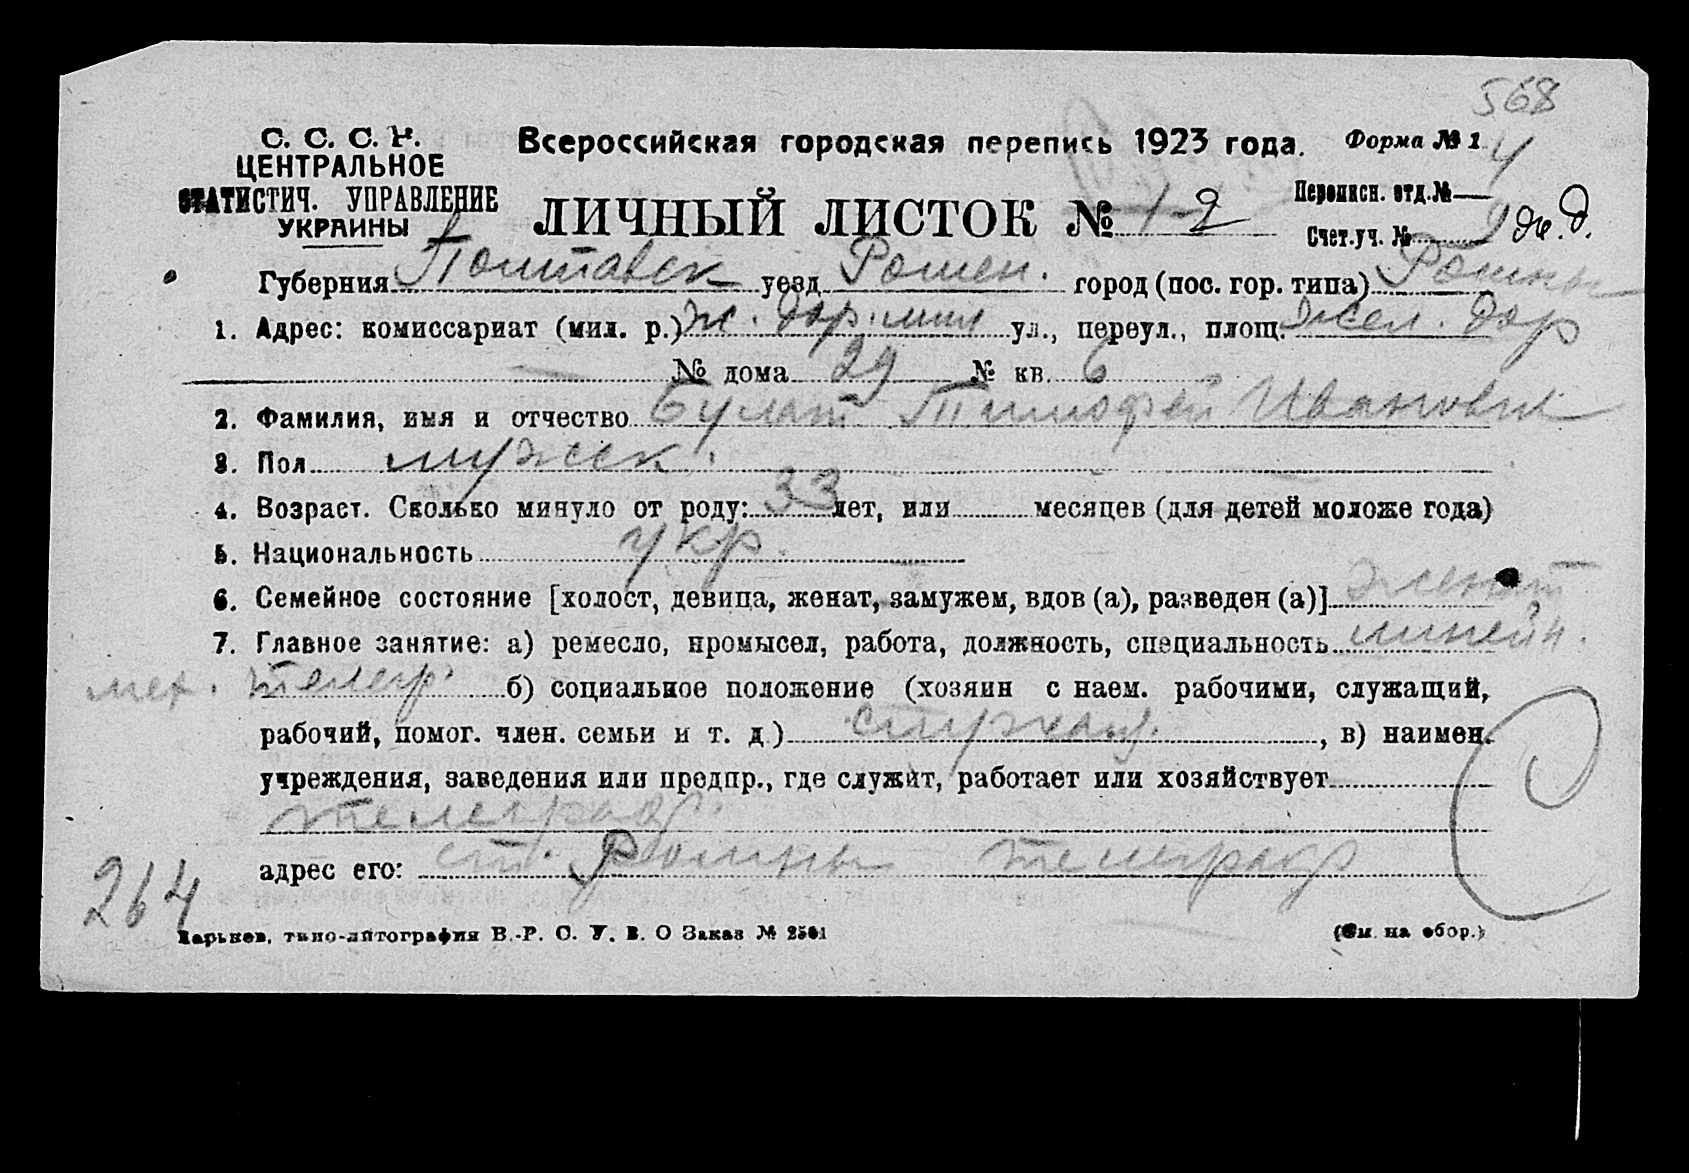 568
С. С. С. Р. Всероссийская городская перепись 1923 года. Форма № 1
4
ЦЕНТРАЛЬНОЕ
СТАТИСТИЧ. УПРАВЛЕНИЕ
УКРАИНЫ
ЛИЧНЫЙ ЛИСТОК № 12
Переписн. отд. №
Счет. уч. № 2 ж. д.
Губерния Полтавск уезд Ромен. город (пос. гор. типа) Ромны
1. Адрес: комиссариат (мил. р.) ж. дор. мил ул., переул., площ. Жел. дор
№ дома 29 № кв. 6
2. Фамилия, имя и отчество Булат Тимофей Иванович
3. Пол мужск.
4. Возраст. Сколько минуло от роду: 33 лет, или месяцев (для детей моложе года)
5. Национальность укр.
6. Семейное состояние [холост, девица, женат, замужем, вдов (а), разведен (а)] женат
7. Главное занятие: а) ремесло, промысел, работа, должность, специальность линейн.
мех. телегр. б) социальное положение (хозяин с наем. рабочими, служащий,
рабочий, помог. член. семьи и т. д.) служащ., в) наимен.
учреждения, заведения или предпр., где служит, работает или хозяйствует
телеграф.
адрес его: ст. Ромны телеграф
264
Харьков, типо-литография В.-Р. С. У. В. О Заказ № 2501 (См. на обор.)